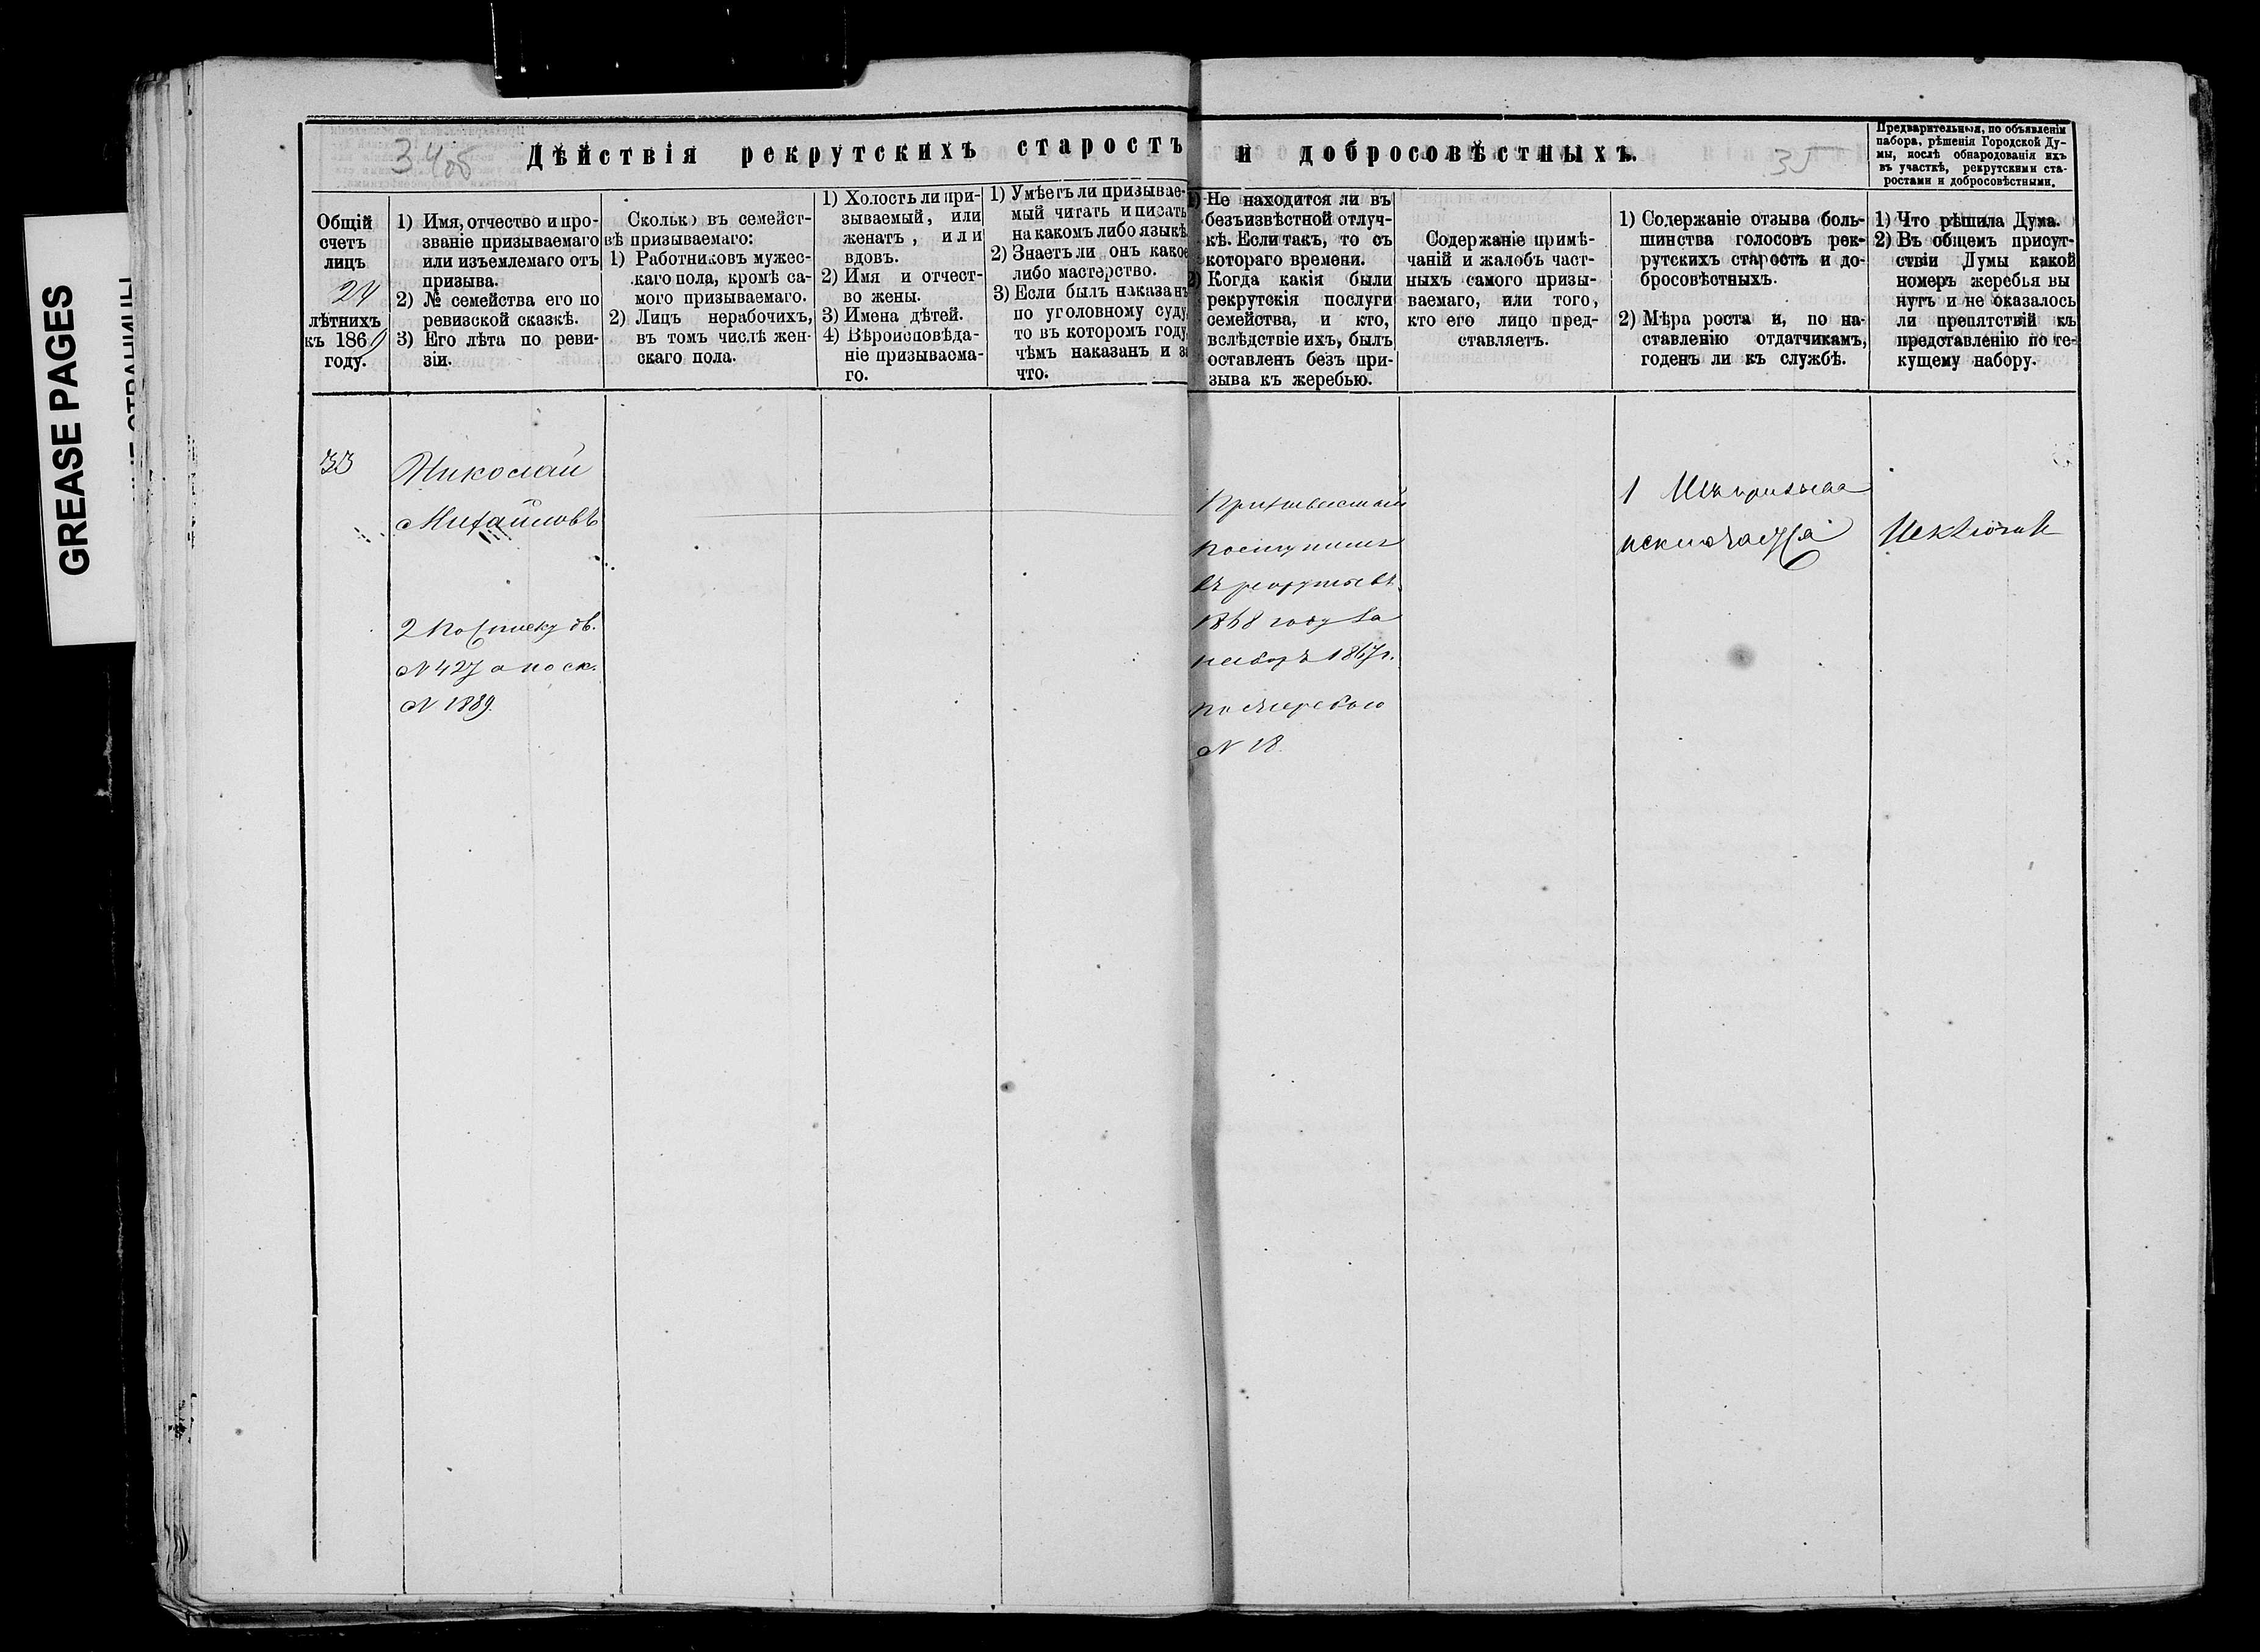 GREASE PAGES
34об
Дѣйствія рекрутскихъ старостъ и добросовѣстныхъ.
35
Предварительныя, по объявленіи
набора, рѣшенія Городской Ду-
мы, послѣ обнародованія ихъ
въ участкѣ, рекрутскими ста-
ростами и добросовѣстными.
Общій
счетъ
лицъ
24
лѣтнихъ
къ 1869
году.
1) Имя, отчество и про-
званіе призываемаго
или изъемлемаго отъ
призыва.
2) № семейства его по
ревизской сказкѣ.
3) Его лѣта по реви-
зіи.
Сколько въ семейст-
вѣ призываемаго:
1) Работниковъ мужес-
каго пола, кромѣ са-
мого призываемаго.
2) Лицъ нерабочихъ,
въ томъ числѣ жен-
скаго пола.
1) Холостъ ли при-
зываемый, или
женатъ, или
вдовъ.
2) Имя и отчест-
во жены.
3) Имена дѣтей.
4) Вѣроисповѣда-
ніе призываема-
го.
1) Умѣетъ ли призывае-
мый читать и писать
на какомъ либо языкѣ.
2) Знаетъ ли онъ какое
либо мастерство.
3) Если былъ наказанъ
по уголовному суду,
то въ которомъ году,
чѣмъ наказанъ и за
что.
1) Не находится ли въ
безъизвѣстной отлуч-
кѣ. Если такъ, то съ
котораго времени.
2) Когда какія были
рекрутскія послуги
семейства, и кто,
вслѣдствіе ихъ, былъ
оставленъ безъ при-
зыва къ жеребью.
Содержаніе примѣ-
чаній и жалобъ част-
ныхъ самого призы-
ваемаго, или того,
кто его лицо пред-
ставляетъ.
1) Содержаніе отзыва боль-
шинства голосовъ рек-
рутскихъ старостъ и до-
бросовѣстныхъ.
2) Мѣра роста и, по на-
ставленію отдатчикамъ,
годенъ ли къ службѣ.
1) Что рѣшила Дума.
2) Въ общемъ присут-
ствіи Думы какой
номеръ жеребья вы
нутъ и не оказалось
ли препятствій къ
представленію по те-
кущему набору.
33
Николай
Михайловъ
2 По списку дв.
N 427 а по ск.
N 1889.
поступилъ
въ рекруты въ
1868 году за
наборъ 1867 г.
по жеребью
N 18.
1 Изъ призыва
исключается
Исключить